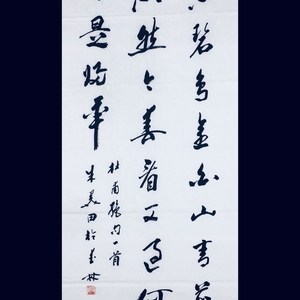 碧鸟逾白山青花
然今春看又過何
是归年
杜甫絶句一首
朱美田於吉林